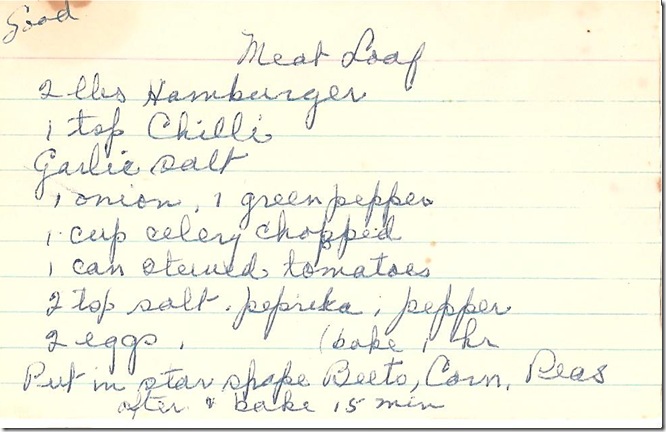 Good
Meat Loaf
2 lbs Hamburger
1 tsp Chilli
Garlic salt
1 onion, 1 green pepper
1 cup celery chopped
1 can stewed tomatoes
2 tsp salt. peprika, pepper
2 eggs, (bake 1 hr
Put in star shape Beets, Corn, Peas
after & bake 15 min